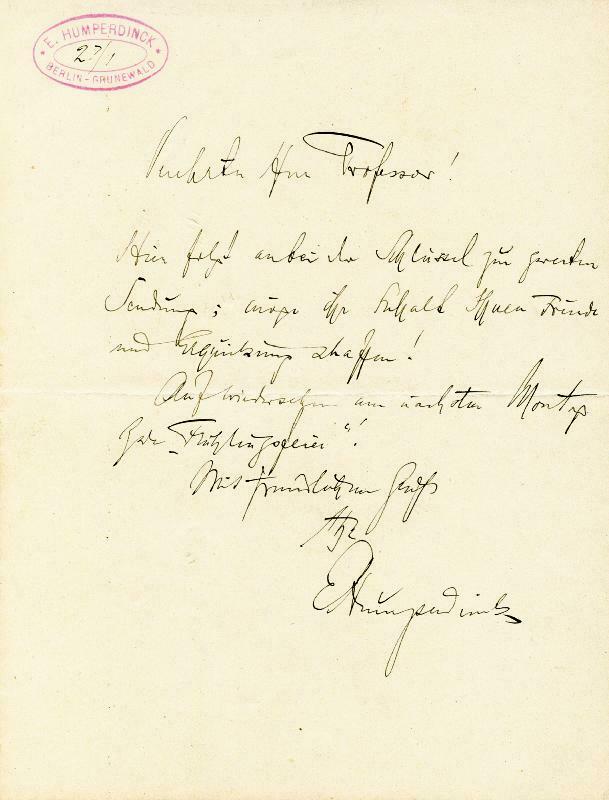 E. HUMPERDINCK
BERLIN-GRUNEWALD
Verehrter Herr Professor!
Hier folgt anbei der Schlüssel zur zweiten
Sendung; möge ihr Inhalt Ihnen Freude
und Erquickung schaffen!
Auf Wiedersehen am nächsten Montag
„Frühlingsfeier“!
Mit freundlichem Gruß
Ihr
EHumperdinck